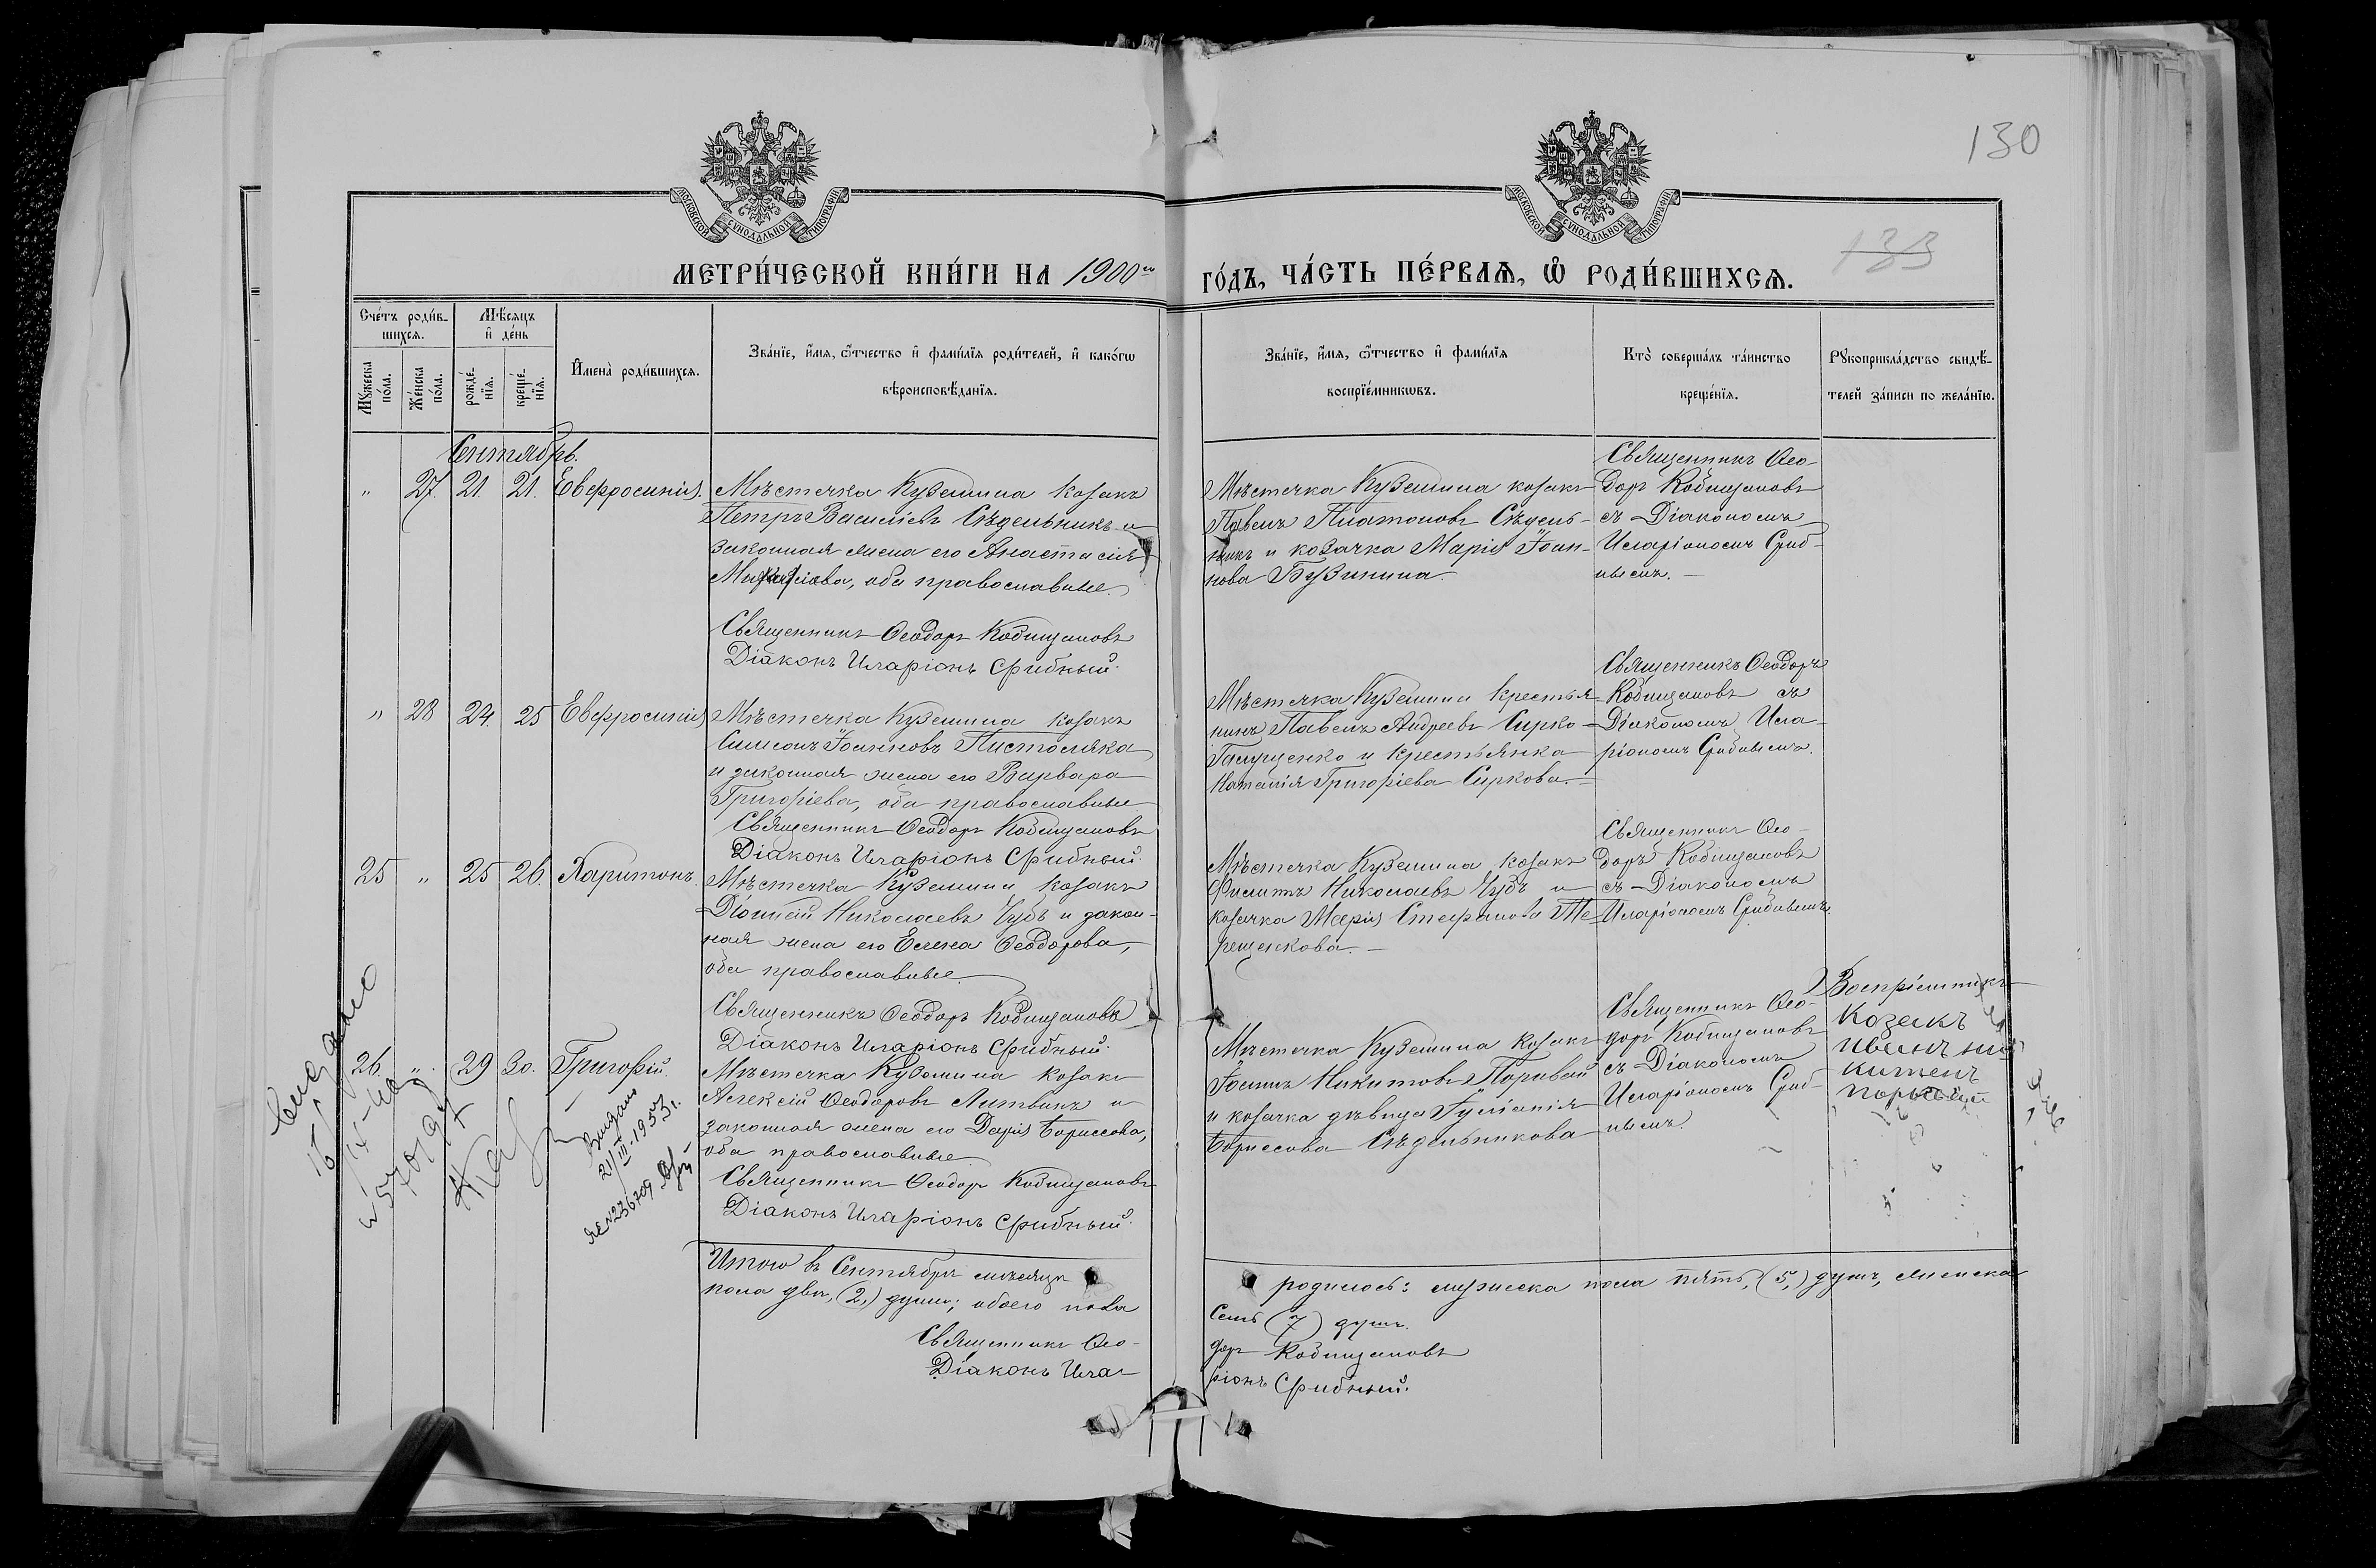 130
133
МОСКОВСКОЙ СѴНОДАЛЬНОЙ ТИПОГРАФІИ
МОСКОВСКОЙ СѴНОДАЛЬНОЙ ТИПОГРАФІИ
МЕТРИ́ЧЕСКОЙ КНИ́ГИ НА 1900й ГО́ДЪ, ЧА́СТЬ ПЕ́РВАѦ, Ѡ РОДИ́ВШИХСѦ.
Сче́тъ роди́в-
шихсѧ.
Мꙋ́жеска по́ла.
Же́нска по́ла.
Мѣ́сяцъ
и де́нь
рожде́-
нїѧ.
креще́-
нїѧ.
Имена̀ роди́вшихсѧ.
Зва́нїе, и́мѧ, ѻ́тчество и фами́лїѧ роди́телей, и како́гѡ
вѣроисповѣ́данїѧ.
Зва́нїе, и́мѧ, ѻ́тчество и фами́лїѧ
воспрїе́мникѡвъ.
Кто̀ соверша́лъ та́инство
креще́нїѧ.
Рꙋкоприкла́дство свидѣ́-
телей за́писи по жела́нїю.
Сентябрь.
" 27. 21. 21. Евфросинія.
Мѣстечка Куземина козакъ
Петръ Василіевъ Сѣдельникъ и
законная жена его Анастасія
Михаилова, оба православные.
Священникъ Ѳеодоръ Кобищановъ
Діаконъ Иларіонъ Срибный.
Мѣстечка Куземина козакъ
Павелъ Платоновъ Сѣдель-
никъ и козачка Марія Іоан-
нова Бузинина.
Священникъ Ѳео-
доръ Кобищановъ
съ Діакономъ
Иларіономъ Сриб-
нымъ.
" 28 24. 25 Евфросинія
Мѣстечка Куземина козакъ
Симеонъ Іоанновъ Пистоляка
и законная жена его Варвара
Григоріева, оба православные
Священникъ Ѳеодоръ Кобищановъ
Діаконъ Иларіонъ Срибный.
Мѣстечка Куземина крестья-
нинъ Павелъ Андреевъ Сирко-
Галущенко и крестьянка
Наталія Григоріева Сиркова.
Священникъ Ѳеодоръ
Кобищановъ съ
Діакономъ Ила-
ріономъ Срибнымъ.
25 " 25 26. Харитонъ.
Мѣстечка Куземина козакъ
Діонисій Николаевъ Чубъ и закон-
ная жена его Елена Ѳеодорова,
оба православные
Священникъ Ѳеодоръ Кобищановъ
Діаконъ Иларіонъ Срибный.
Мѣстечка Куземина козакъ
Филиппъ Николаевъ Чубъ и
козачка Марія Стефанова Те-
рещенкова.
Священникъ Ѳео-
доръ Кобищановъ
съ Діакономъ
Иларіономъ Срибнымъ.
26. " 29 30. Григорій.
Мѣстечка Куземина козакъ
Алексій Ѳеодоровъ Литвинъ и
законная жена его Дарія Борисова,
оба православные
Священникъ Ѳеодоръ Кобищановъ
Діаконъ Иларіонъ Срибный.
Мѣстечка Куземина козакъ
Іоаннъ Никитовъ Поривай
и козачка дѣвица Іуліанія
Борисова Сѣдельникова
Священникъ Ѳео-
доръ Кобищановъ
съ Діакономъ
Иларіономъ Сриб-
нымъ.
Воспріемникъ
Козакъ
Иванъ
Выдано
21/III.1953г.
ЯЕ №236709
Итого въ Сентябрѣ мѣсяцѣ родилось: мужеска пола пять, (5,) душъ, женска
пола двѣ, (2,) души; обоего пола семь (7) душъ.
Священникъ Ѳео-доръ Кобищановъ
Діаконъ Ила-ріонъ Срибный.